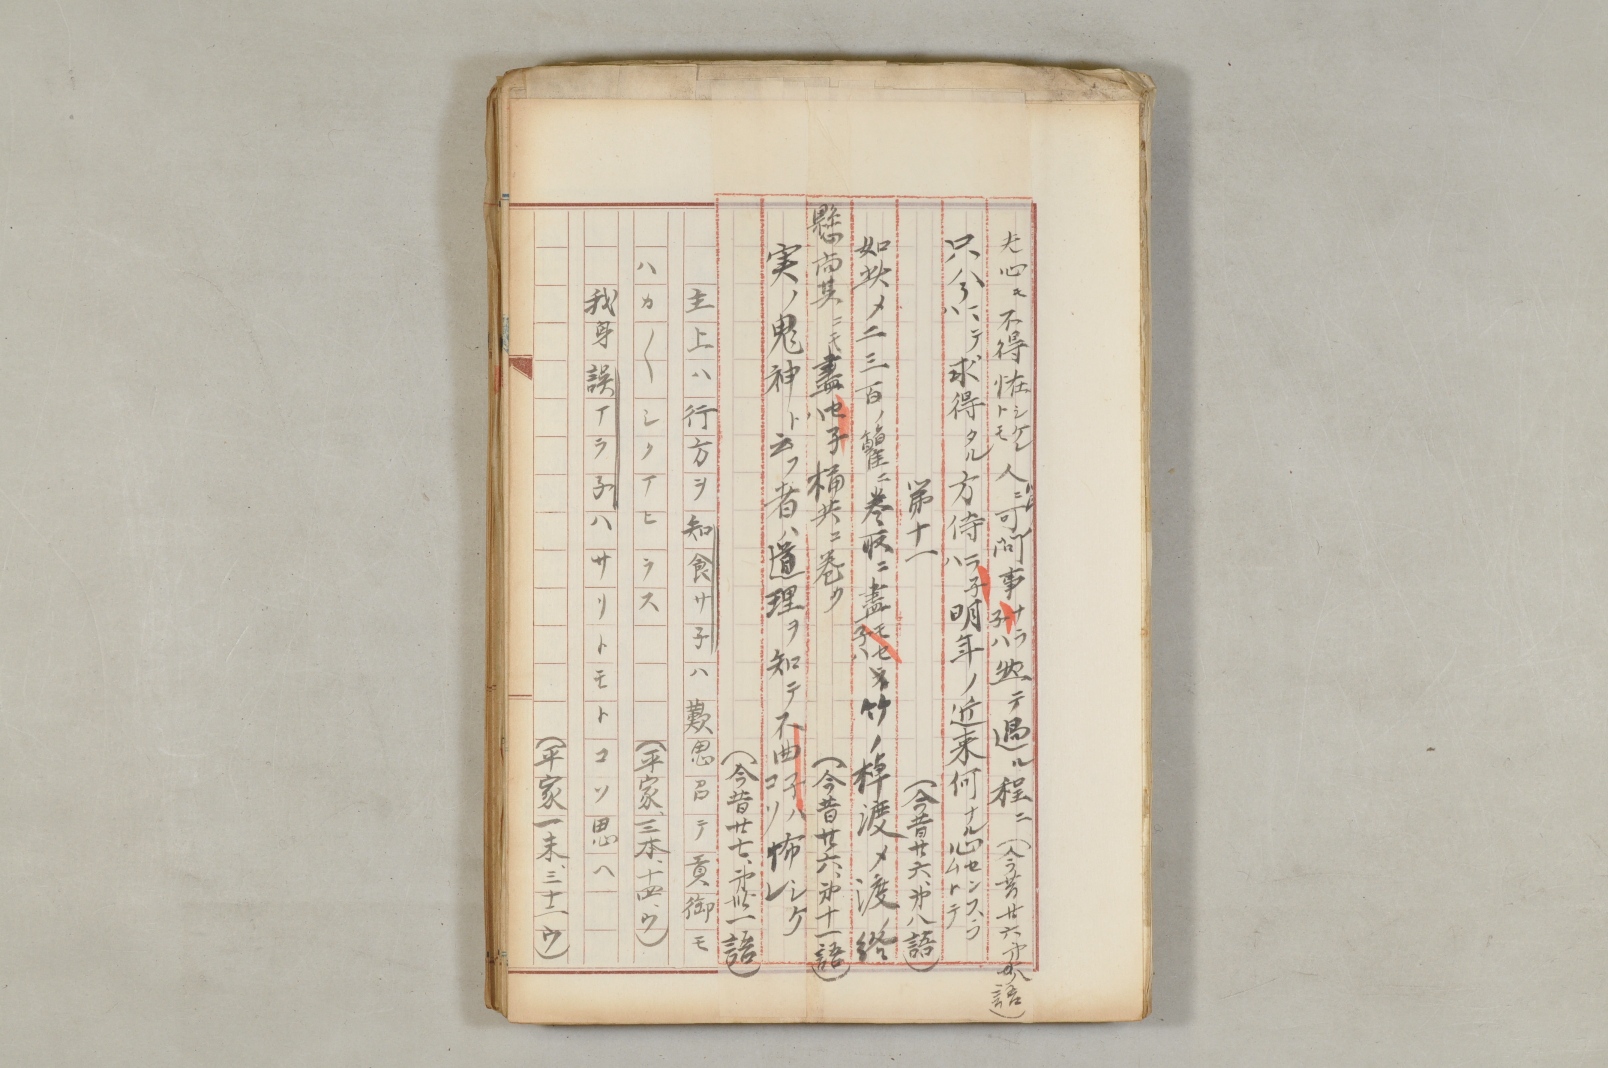 心モ不得怪シケレトモ人ニ可問事ナラ子ハ然テ過ル程ニ(今昔廿六、第八語)
只今ハ、ニテ求得タル方侍ラ子ハ明年ノ近来何ナル心センスラムトテ
第十一 (今昔廿六、第八語)
如此メ二三百ノ籰ニ巻取ニ盡モセ子ハ竹ノ棹渡メ渡絡
懸尚其ニモ盡セ子ハ桶共ニ巻ク (今昔廿六、第十一語)
実ノ鬼神ト云フ者ハ道理ヲ知テ不曲子ハコソ怖シケレ
(今昔廿七、第卅一語)
主上ハ行方ヲ知食サ子ハ歎思召テ貢御モ
ハカ〱シクアヒラス (平家、三本、十四、ウ)
我身誤アラ子ハサリトモトコソ思ヘ
(平家一末、三十一ウ)